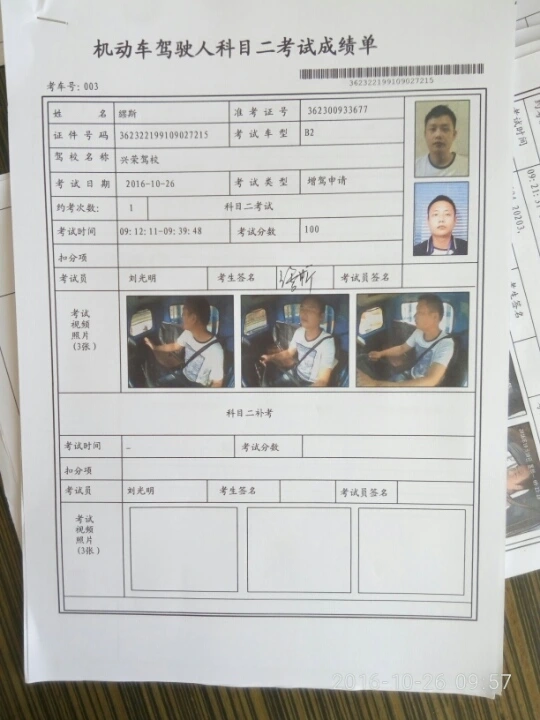 机动车驾驶人科目二考试成绩单
362322199109027215
考车号: 003
姓 名 缪斯 准 考 证 号 362300933677
证 件 号 码 362322199109027215 考 试 车 型 B2
驾 校 名 称 兴荣驾校
考 试 日 期 2016-10-26 考 试 类 型 增驾申请
约考次数: 1 科目二考试
考试时间 09:12:11-09:39:48 考试分数 100
扣分项
考试员 刘光明 考生签名 考试员签名
考试
视频
照片
(3张)
科目二补考
考试时间 - 考试分数
扣分项
考试员 刘光明 考生签名 考试员签名
考试
视频
照片
(3张)
2016-10-26 09:57